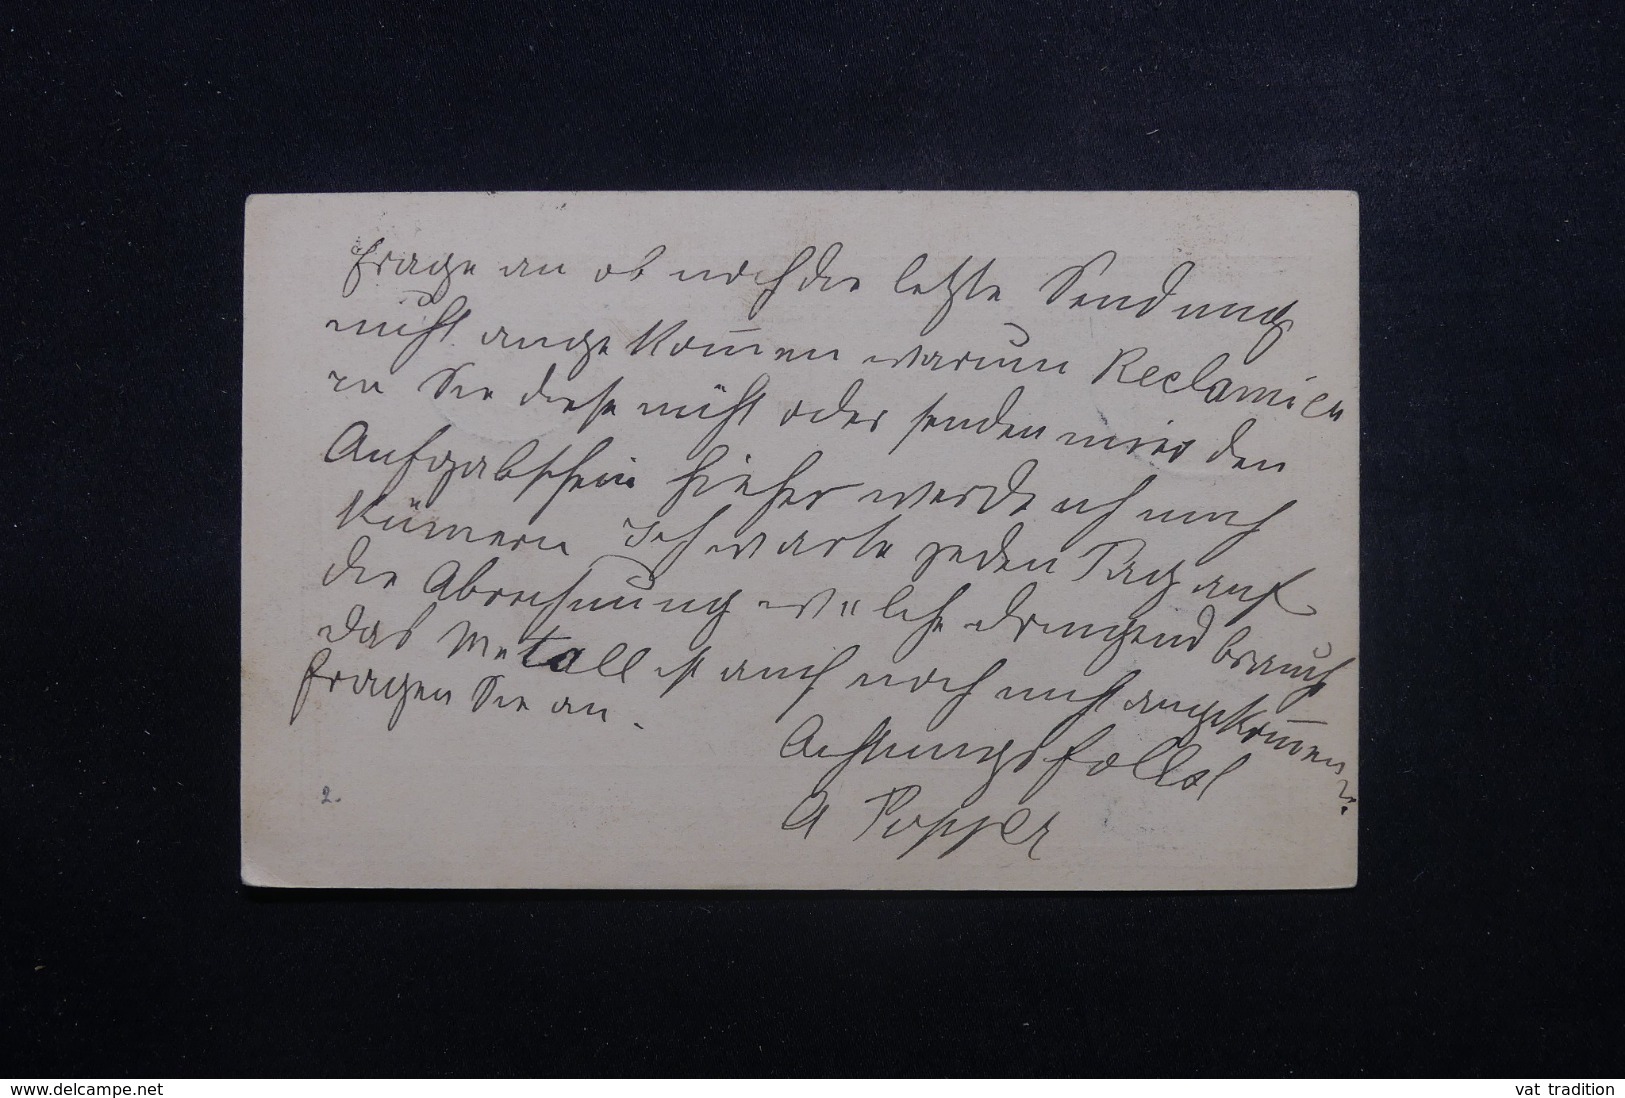 frage an ob noch die letzte Sendung
nicht angekom̅en warum Reclamien
en Sie diese nicht oder senden mier den
Aufgabschein hieher werde ich mich
küm̅ern Ich warte jeden Tag auf
die Abrechnung welche dringend brauch
das Metall ist auch noch nicht angekom̅en?
fragen Sie an.
Achtungsfolls
A Popper
2.
www.delcampe.net
vat tradition